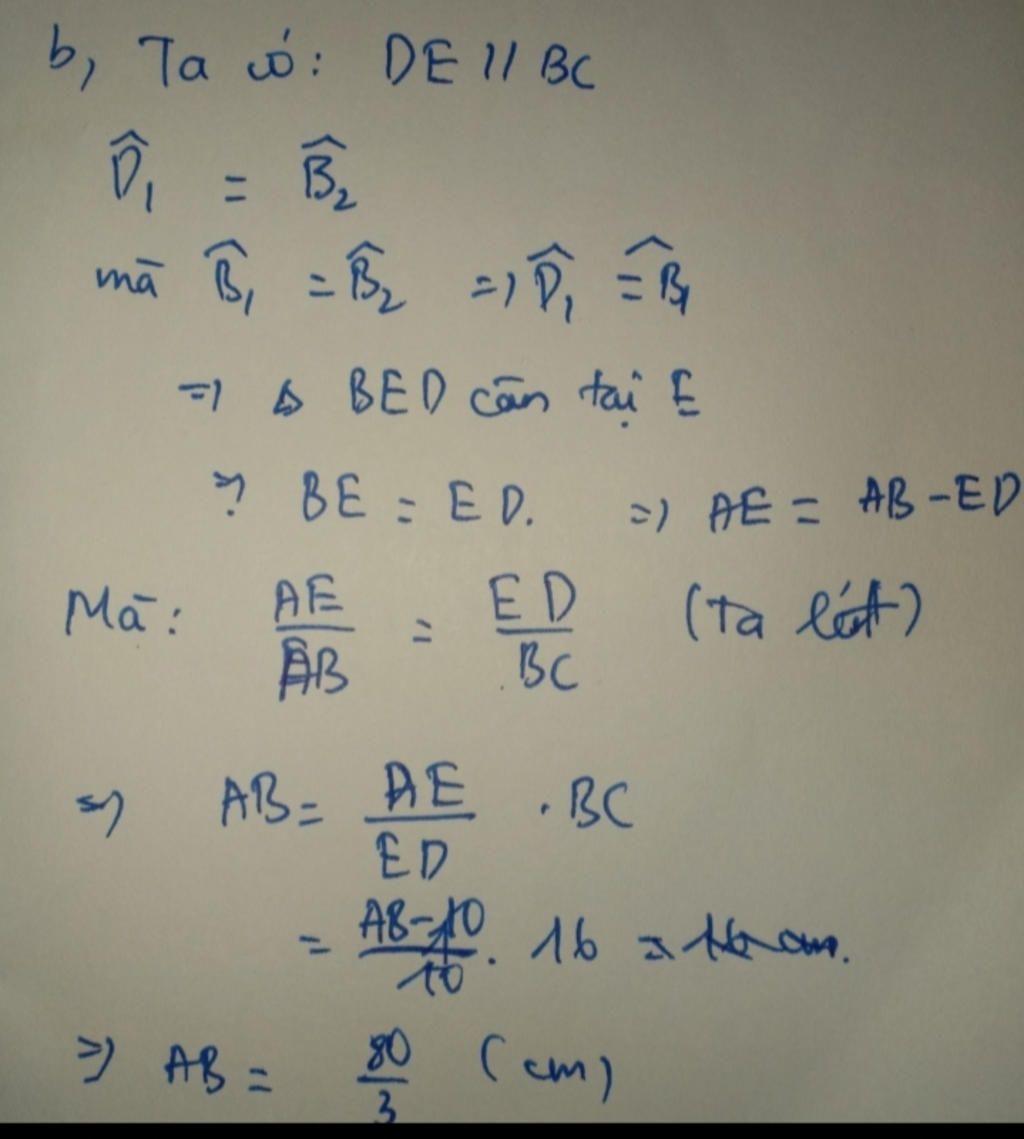 b, Ta có: DE // BC
D̂₁ = B̂₂
mà B̂₁ = B̂₂ => D̂₁ = B̂₁
=> Δ BED cân tại E
=> BE = ED. => AE = AB - ED
Mà: AE/AB = ED/BC (Ta lét)
=> AB = AE/ED . BC
= AB-10/10 . 16
=> AB = 80/3 (cm)